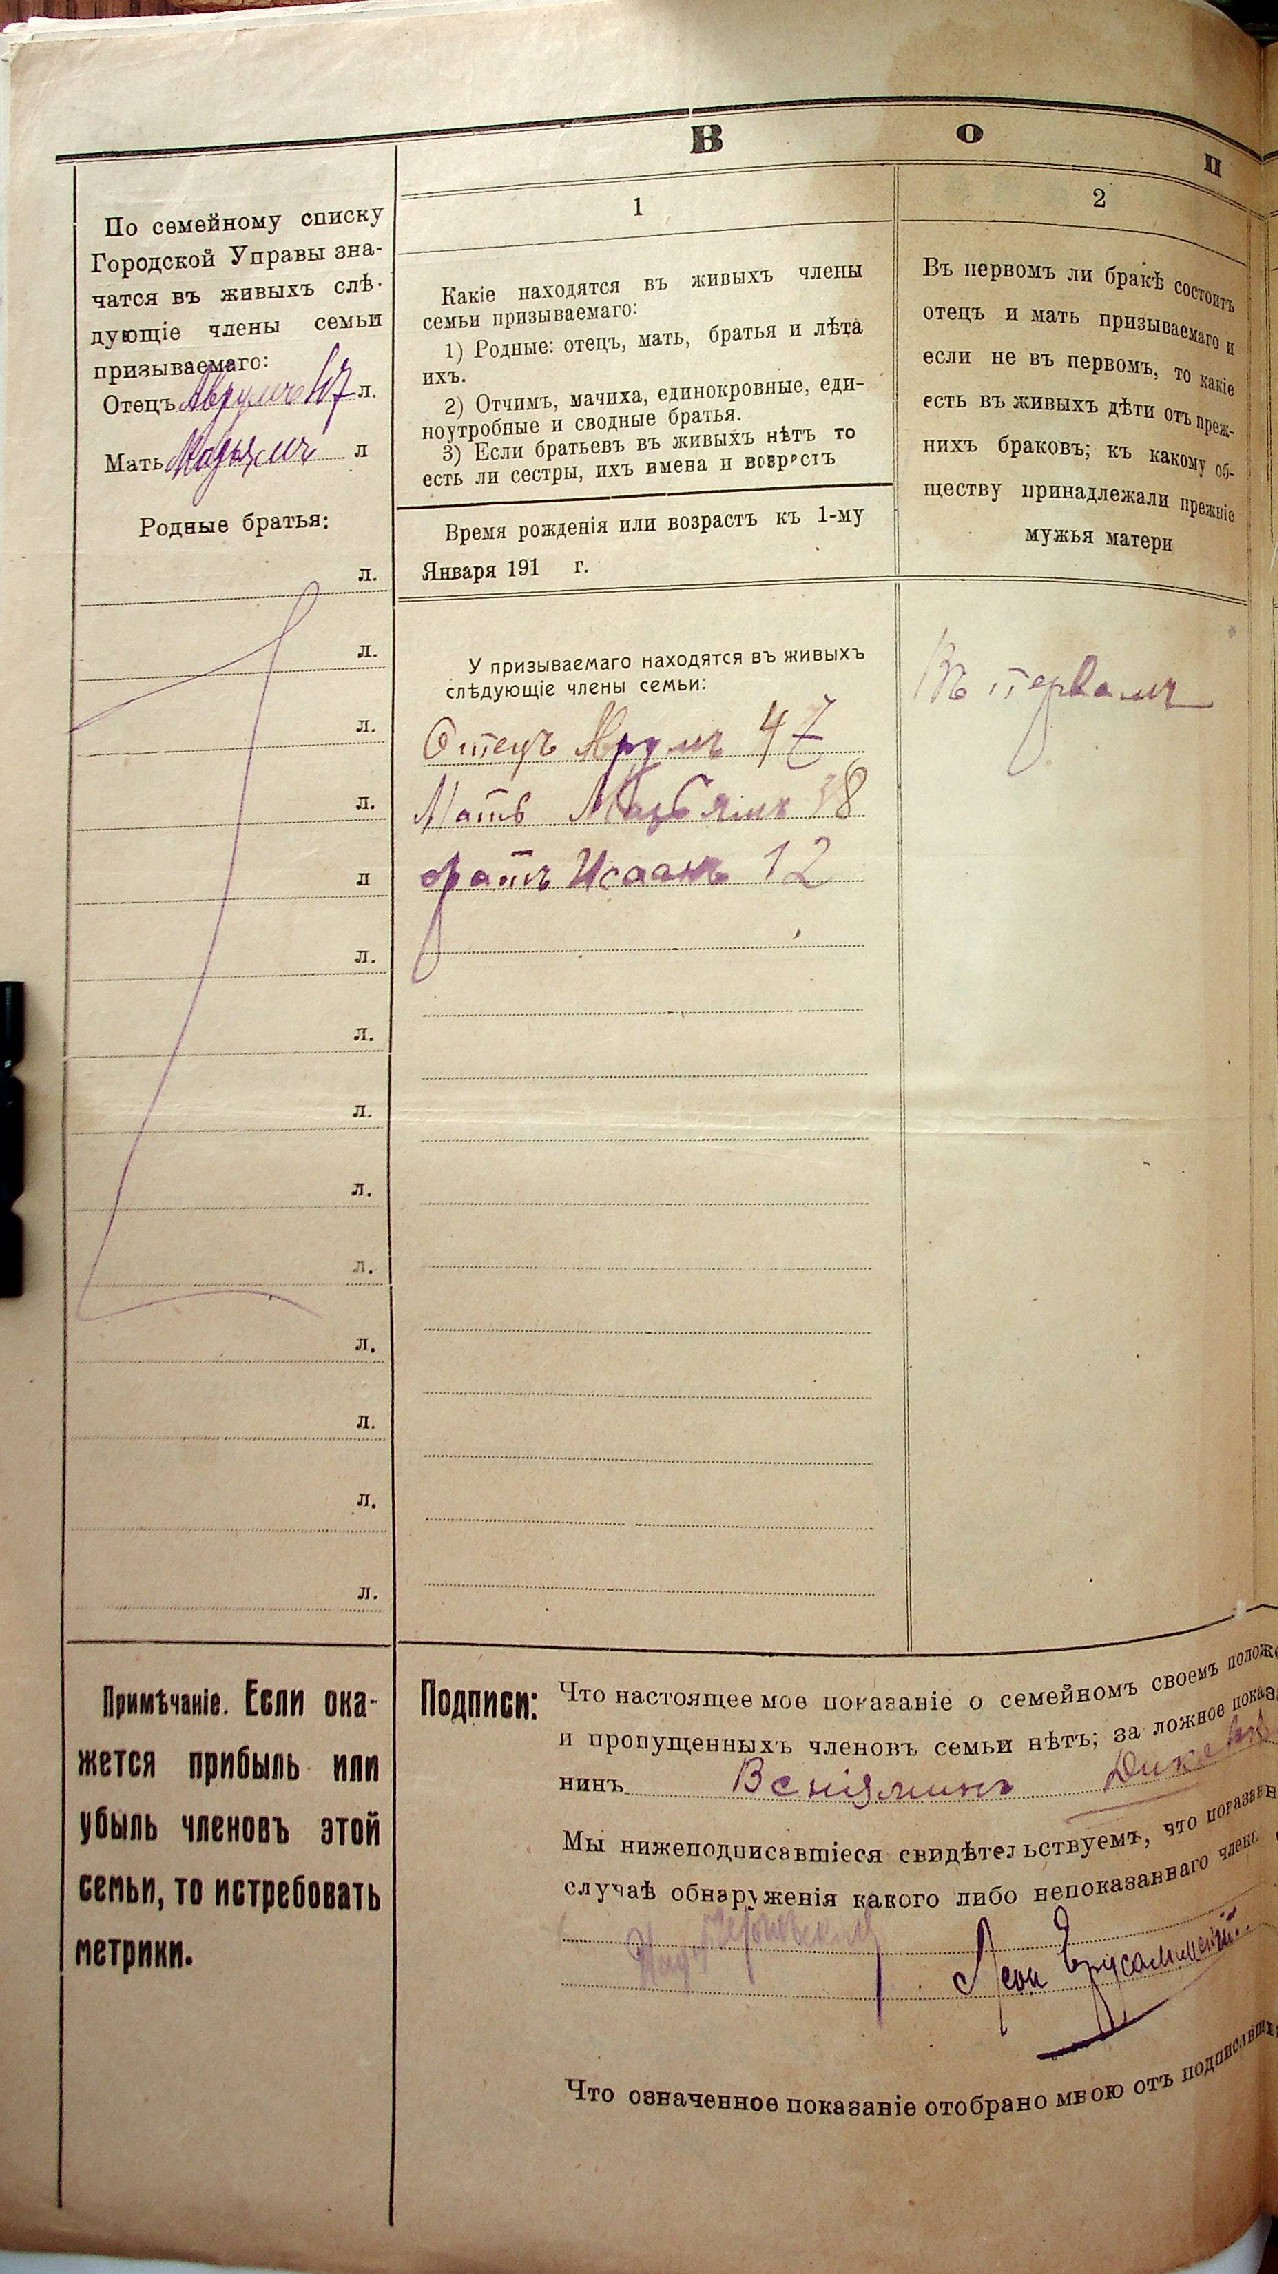 В о п
По семейному списку
Городской Управы зна-
чатся въ живыхъ слѣ-
дующіе члены семьи
призываемаго:
Отецъ Аврумъ 47 л.
Мать Марьямъ л
Родные братья:
л.
л.
л.
л.
л
л.
л.
л.
л.
л.
л.
л.
л.
л.
1
Какіе находятся въ живыхъ члены
семьи призываемаго:
1) Родные: отецъ, мать, братья и лѣта
ихъ.
2) Отчимъ, мачиха, единокровные, еди-
ноутробные и сводные братья.
3) Если братьевъ въ живыхъ нѣтъ то
есть ли сестры, ихъ имена и возрастъ
Время рожденія или возрастъ къ 1-му
Января 191 г.
У призываемаго находятся въ живыхъ
слѣдующіе члены семьи:
Отецъ Аврумъ 47
Мать Марьямъ 38
братъ Исаакъ 12
2
Въ первомъ ли бракѣ состоитъ
отецъ и мать призываемаго и
если не въ первомъ, то какіе
есть въ живыхъ дѣти отъ преж-
нихъ браковъ; къ какому об-
ществу принадлежали прежніе
мужья матери
Въ первомъ
Примѣчаніе. Если ока-
жется прибыль или
убыль членовъ этой
семьи, то истребовать
метрики.
Подписи: Что настоящее мое показаніе о семейномъ своемъ полож
и пропущенныхъ членовъ семьи нѣтъ; за ложное показа
нинъ Веніяминъ
Мы нижеподписавшіеся свидѣтельствуемъ, что показан
случаѣ обнаруженія какого либо непоказаннаго члена
Леон Ерусалимскій
Что означенное показаніе отобрано мною отъ подписавших